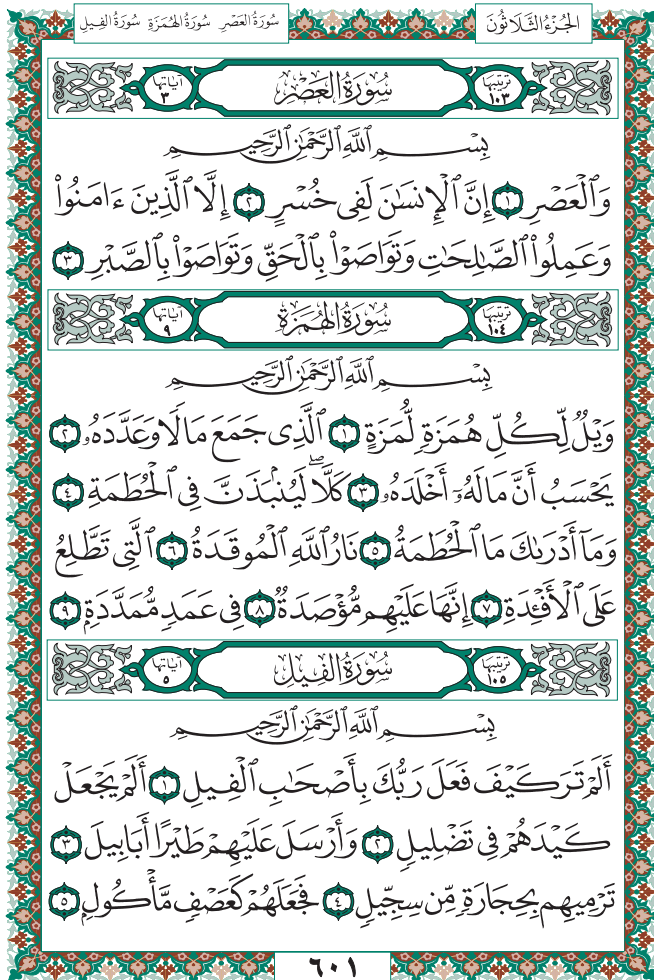 الجُزْءُ الثَّلَاثُونَ
سُورَةُ العَصْرِ سُورَةُ الهُمَزَةِ سُورَةُ الفِيلِ
تَرْتِيبُهَا ١٠٣ سُورَةُ العَصْرِ آيَاتُهَا ٣
بِسْمِ ٱللَّهِ ٱلرَّحْمَٰنِ ٱلرَّحِيمِ
وَٱلْعَصْرِ ١ إِنَّ ٱلْإِنسَٰنَ لَفِى خُسْرٍ ٢ إِلَّا ٱلَّذِينَ ءَامَنُوا۟
وَعَمِلُوا۟ ٱلصَّٰلِحَٰتِ وَتَوَاصَوْا۟ بِٱلْحَقِّ وَتَوَاصَوْا۟ بِٱلصَّبْرِ ٣
تَرْتِيبُهَا ١٠٤ سُورَةُ الهُمَزَةِ آيَاتُهَا ٩
بِسْمِ ٱللَّهِ ٱلرَّحْمَٰنِ ٱلرَّحِيمِ
وَيْلٌ لِّكُلِّ هُمَزَةٍ لُّمَزَةٍ ١ ٱلَّذِى جَمَعَ مَالًا وَعَدَّدَهُۥ ٢
يَحْسَبُ أَنَّ مَالَهُۥٓ أَخْلَدَهُۥ ٣ كَلَّا ۖ لَيُنۢبَذَنَّ فِى ٱلْحُطَمَةِ ٤
وَمَآ أَدْرَىٰكَ مَا ٱلْحُطَمَةُ ٥ نَارُ ٱللَّهِ ٱلْمُوقَدَةُ ٦ ٱلَّتِى تَطَّلِعُ
عَلَى ٱلْأَفْـِٔدَةِ ٧ إِنَّهَا عَلَيْهِم مُّؤْصَدَةٌ ٨ فِى عَمَدٍ مُّمَدَّدَةٍۭ ٩
تَرْتِيبُهَا ١٠٥ سُورَةُ الفِيلِ آيَاتُهَا ٥
بِسْمِ ٱللَّهِ ٱلرَّحْمَٰنِ ٱلرَّحِيمِ
أَلَمْ تَرَ كَيْفَ فَعَلَ رَبُّكَ بِأَصْحَٰبِ ٱلْفِيلِ ١ أَلَمْ يَجْعَلْ
كَيْدَهُمْ فِى تَضْلِيلٍ ٢ وَأَرْسَلَ عَلَيْهِمْ طَيْرًا أَبَابِيلَ ٣
تَرْمِيهِم بِحِجَارَةٍ مِّن سِجِّيلٍ ٤ فَجَعَلَهُمْ كَعَصْفٍ مَّأْكُولٍۭ ٥
٦٠١